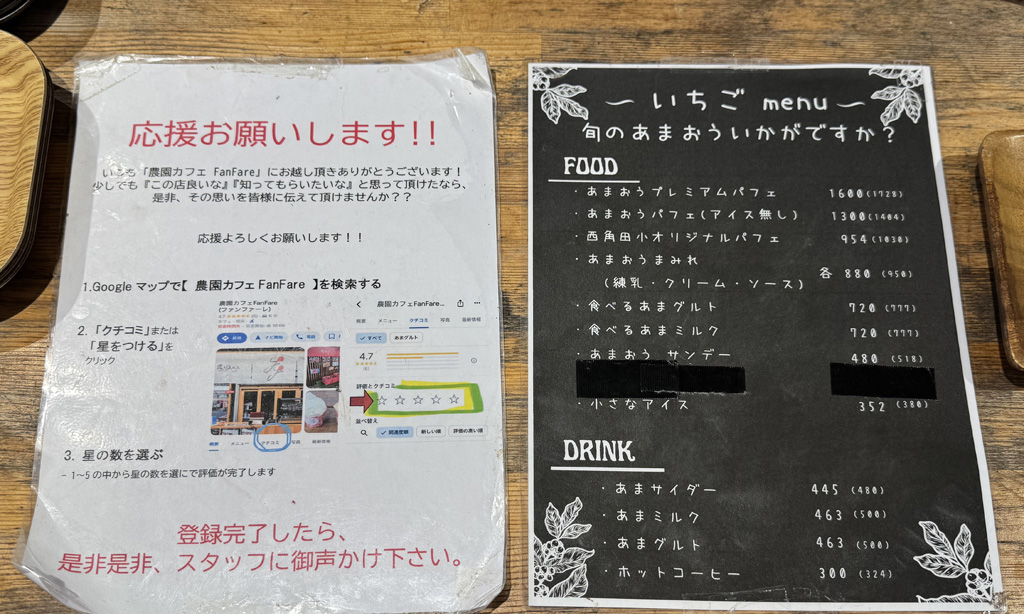 応援お願いします!!
いつも「農園カフェ FanFare」にお越し頂きありがとうございます！
少しでも『この店良いな』『知ってもらいたいな』と思って頂けたなら、
是非、その思いを皆様に伝えて頂けませんか？？
応援よろしくお願いします！！
1.Google マップで【 農園カフェ FanFare 】を検索する
2. 「クチコミ」または
「星をつける」を
クリック
農園カフェFanFare
(ファンファーレ)
概要 メニュー クチコミ 写真 最新情報
農園カフェFanFare...
概要 メニュー クチコミ 写真 最新情報
すべて あまグルト
4.7
評価とクチコミ
並べ替え
関連度順 新しい順 評価の高い順
3. 星の数を選ぶ
- 1~5 の中から星の数を選にで評価が完了します
登録完了したら、
是非是非、スタッフに御声かけ下さい。
〜 いちご menu 〜
旬のあまおういかがですか？
FOOD
・あまおうプレミアムパフェ 1600(1728)
・あまおうパフェ(アイス無し) 1300(1404)
・西角田小オリジナルパフェ 954(1030)
・あまおうまみれ
(練乳・クリーム・ソース) 各 880 (950)
・食べるあまグルト 720 (777)
・食べるあまミルク 720 (777)
・あまおう サンデー 480 (518)
・小さなアイス 352 (380)
DRINK
・あまサイダー 445 (480)
・あまミルク 463 (500)
・あまグルト 463 (500)
・ホットコーヒー 300 (324)